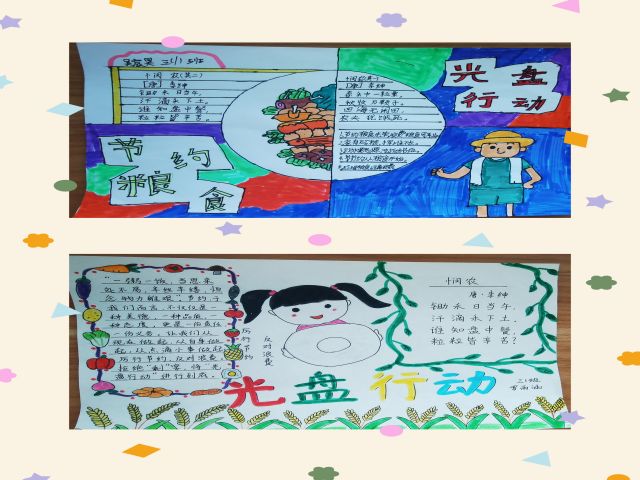 三(1)班
悯农(其二)
[唐]李绅
锄禾日当午,
汗滴禾下土。
谁知盘中餐,
粒粒皆辛苦。
悯农其一
[唐]李绅
春种一粒粟,
秋收万颗子。
四海无闲田,
农夫犹饿死。
光盘
行动
节约
粮食
"一粥一饭,当思来
处不易,半丝半缕,恒
念物力维艰"。节约于
我们而言,不仅仅是一
种美德,一种品质,一
种态度,更是一份责任
一份义务。让我们从
现在做起,从自身做
起,从点滴小事做起
厉行节约,反对浪费
拒绝"剩"宴,将"光
盘行动"进行到底!
厉行节约
反对浪费
悯农
唐·李绅
锄禾日当午,
汗滴禾下土。
谁知盘中餐,
粒粒皆辛苦?
光盘行动
三1班